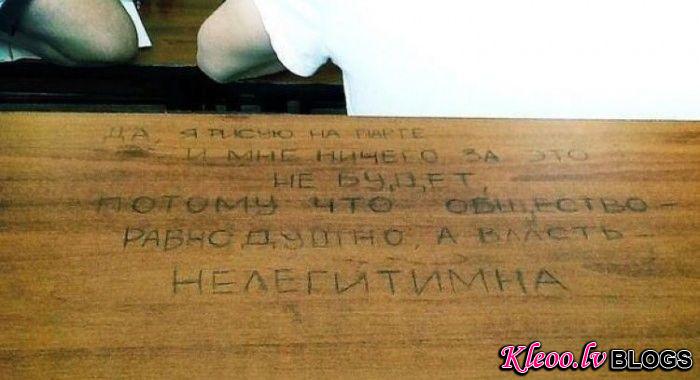 ДА, Я РИСУЮ НА ПАРТЕ
И МНЕ НИЧЕГО ЗА ЭТО
НЕ БУДЕТ,
ПОТОМУ ЧТО ОБЩЕСТВО -
РАВНОДУШНО, А ВЛАСТЬ -
НЕЛЕГИТИМНА
Kleoo.lv BLOGS